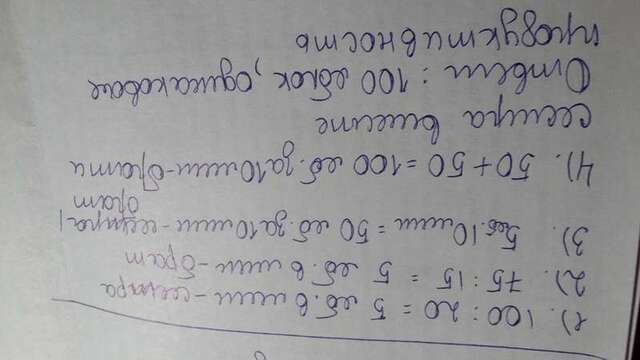 1). 100 : 20 = 5 яб. в мин - сестра
2). 75 : 15 = 5 яб. в мин - брат
3). 5яб. 10мин = 50 яб. за 10 мин - сестра/
брат
4). 50 + 50 = 100 яб. за 10 мин - брат и
сестра вместе
Ответ : 100 яблок, одинаковая
продуктивность